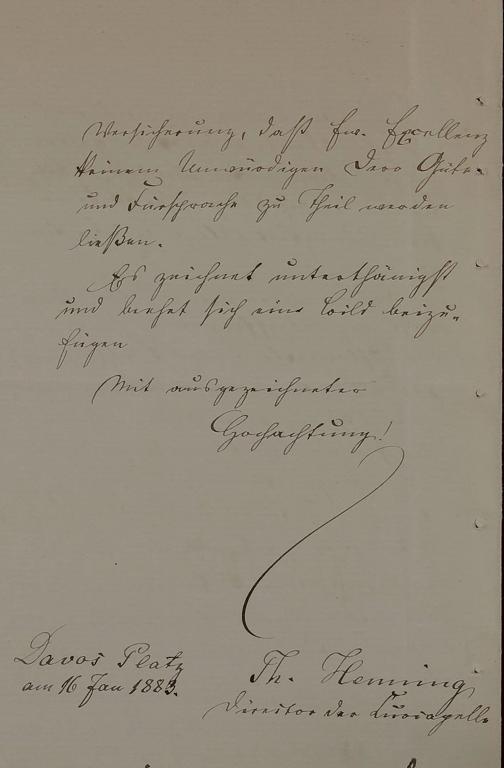 Versicherung, daß Ew. Excellenz
Keinem Unwürdigen Dero Güte
und Fürsprache zu Theil werden
ließen.
Es zeichnet unterthänigst
und beehrt sich ein Bild beizu=
fügen
Mit ausgezeichneter
Hochachtung!
Davos Platz
am 16 Jan 1883.
Th. Henning
Director der Curcapelle